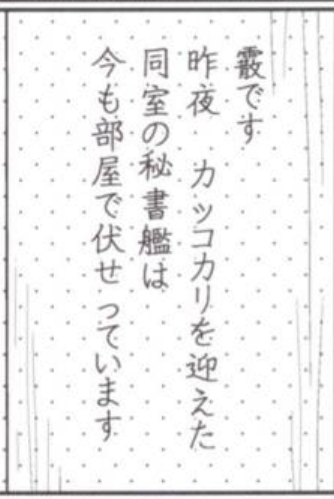 霰です
昨夜　カッコカリを迎えた
同室の秘書艦は
今も部屋で伏せっています